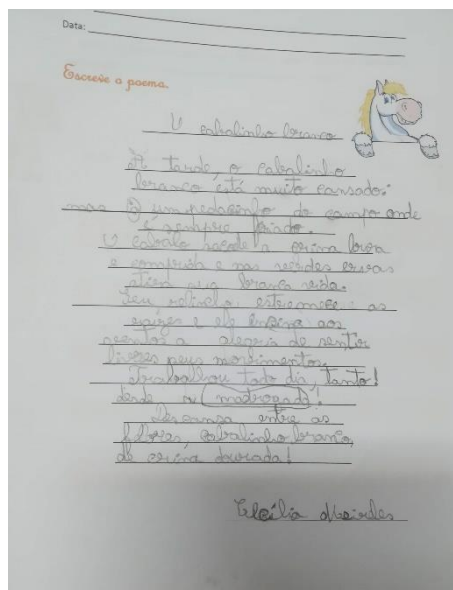 Data:
Escreve o poema.
O cabalinho branco
À tarde, o cabalinho
branco está muito cansado:
mas há um pedacinho do campo onde
é sempre friado.
O cabalo sacode a crina loira
e comprida e nas verdes ervas
atira sua branca vida.
Seu relincho estremece as
raízes e ele ensina aos
ventos a alegria de sentir
livres seus movimentos.
Trabalhou todo dia, tanto!
desde a madrugada!
Descansa entre as
flores, cabalinho branco,
de crina dourada!
Cecília Meireles